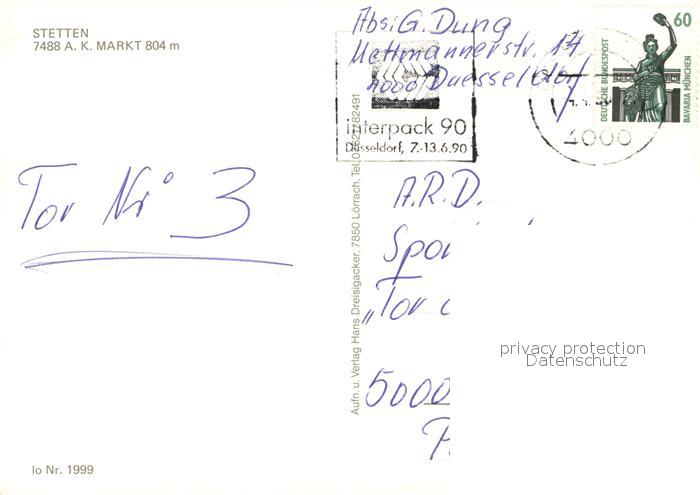 STETTEN
7488 A. K. MARKT 804 m
Abs: G. Dung
Mettmannerstr. 14
4000 Duesseldorf
60
DEUTSCHE BUNDESPOST
BAVARIA MÜNCHEN
interpack 90
Düsseldorf, 7.-13.6.90
4000
Tor Nr. 3
Aufn. u. Verlag Hans Dreisigacker, 7850 Lörrach, Tel.
A.R.D.
Spor
"Tor
5000
privacy protection
Datenschutz
lo Nr. 1999